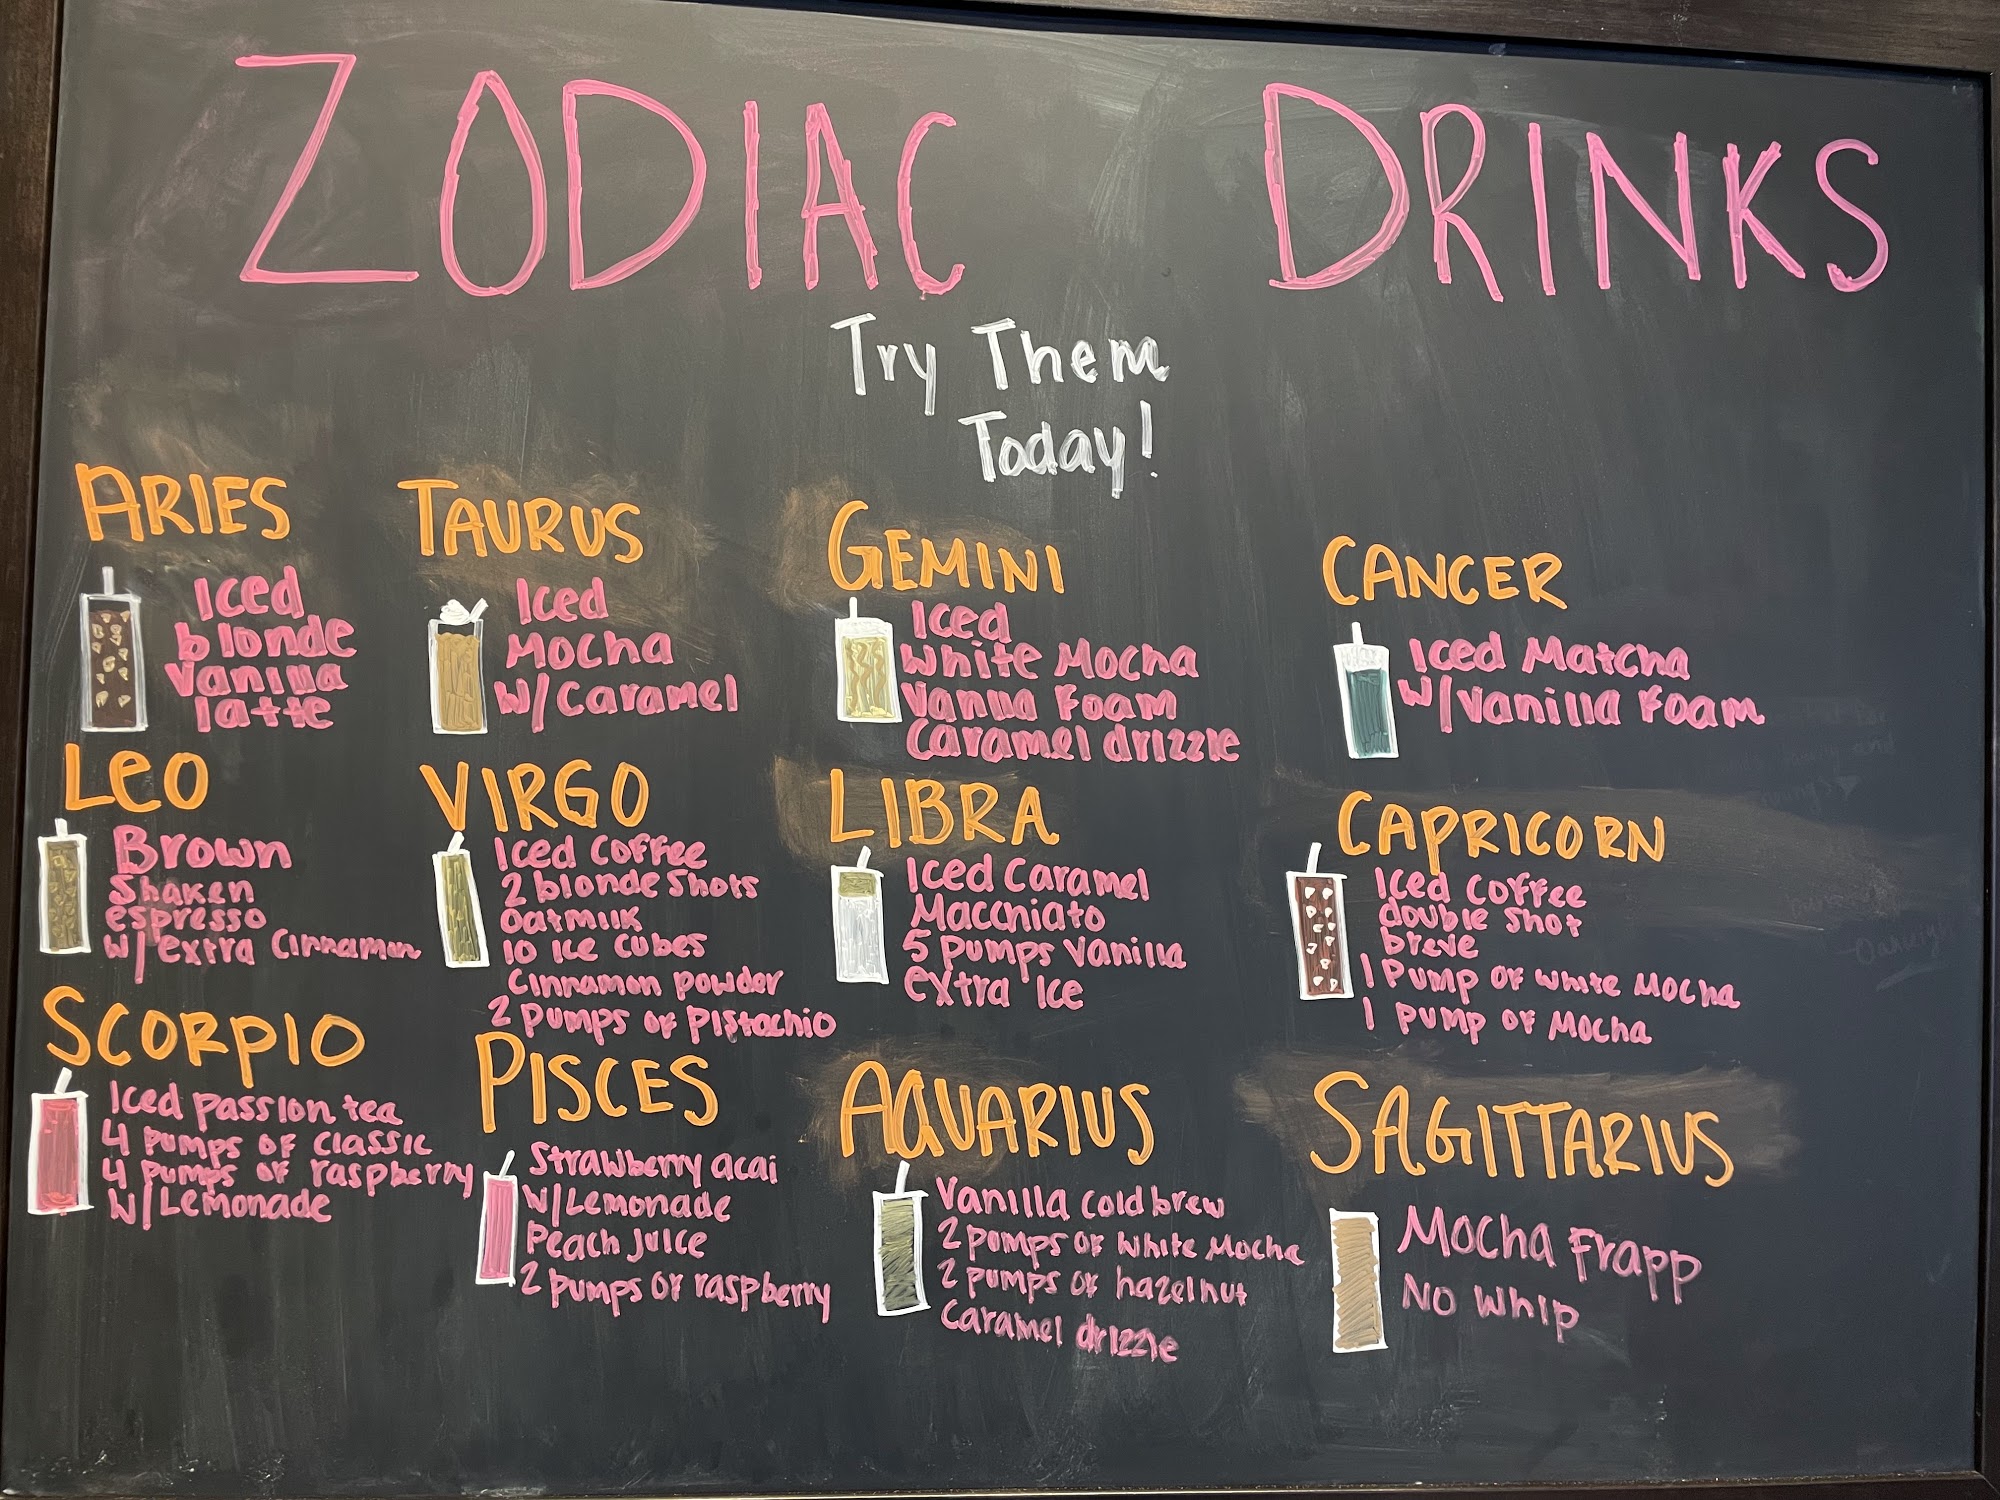 ZODIAC DRINKS
Try Them
Today!
ARIES
Iced
blonde
Vanilla
latte
TAURUS
Iced
Mocha
w/Caramel
GEMINI
Iced
White Mocha
Vanilla Foam
Caramel drizzle
CANCER
Iced Matcha
w/Vanilla Foam
LEO
Brown
Shaken
espresso
w/extra Cinnamon
VIRGO
Iced Coffee
2 blonde shots
Oatmilk
10 Ice Cubes
Cinnamon powder
2 pumps of Pistachio
LIBRA
Iced Caramel
Macchiato
5 pumps Vanilla
extra Ice
CAPRICORN
Iced Coffee
double shot
breve
1 Pump of White Mocha
1 pump of Mocha
SCORPIO
Iced passion tea
4 pumps of classic
4 pumps of raspberry
w/Lemonade
PISCES
Strawberry acai
w/Lemonade
Peach Juice
2 pumps of raspberry
AQUARIUS
Vanilla cold brew
2 pumps of white Mocha
2 pumps of hazelnut
Caramel drizzle
SAGITTARIUS
Mocha Frapp
No Whip